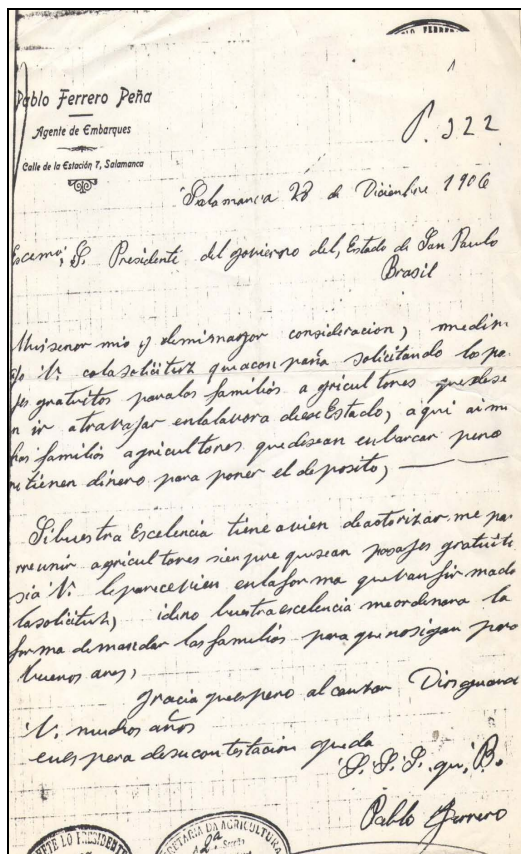 Pablo Ferrero Peña
Agente de Embarques
Calle de la Estación 7, Salamanca
P. 322
Salamanca 28 de Diciembre 1906
Escemo; S. Presidente del govierno del, Estado de San Paulo
Brasil
Muisenor mio y demimayor consideracion, mediri
jo V. colasolicitut queaconpaña solicitando los pa
jes gratuitos paralas familias agricultores quedese
n ir atravajar enlalavora diese Estado, aqui aimu
has familias agricultores quedisean enbarcar pero
tienen dinero para poner el deposito,
Sibuestra Escelencia tiene avien deactorizar me pa
reunir agricultores sienpre qusean pasajes gratuit
sia V. leparecevien enlaforma quevan firmado
lasolicitut, buestraescelencia meordenara la
forma demandar las familias para quenosigan para
buenos aires,
gracia quespero alcanzar Diosguarde
V. muchos años
enespera desucontestacion queda
S. S. S. qu, B.
Pablo Ferrero
LO PRESIDENTE
DA AGRICULTURA